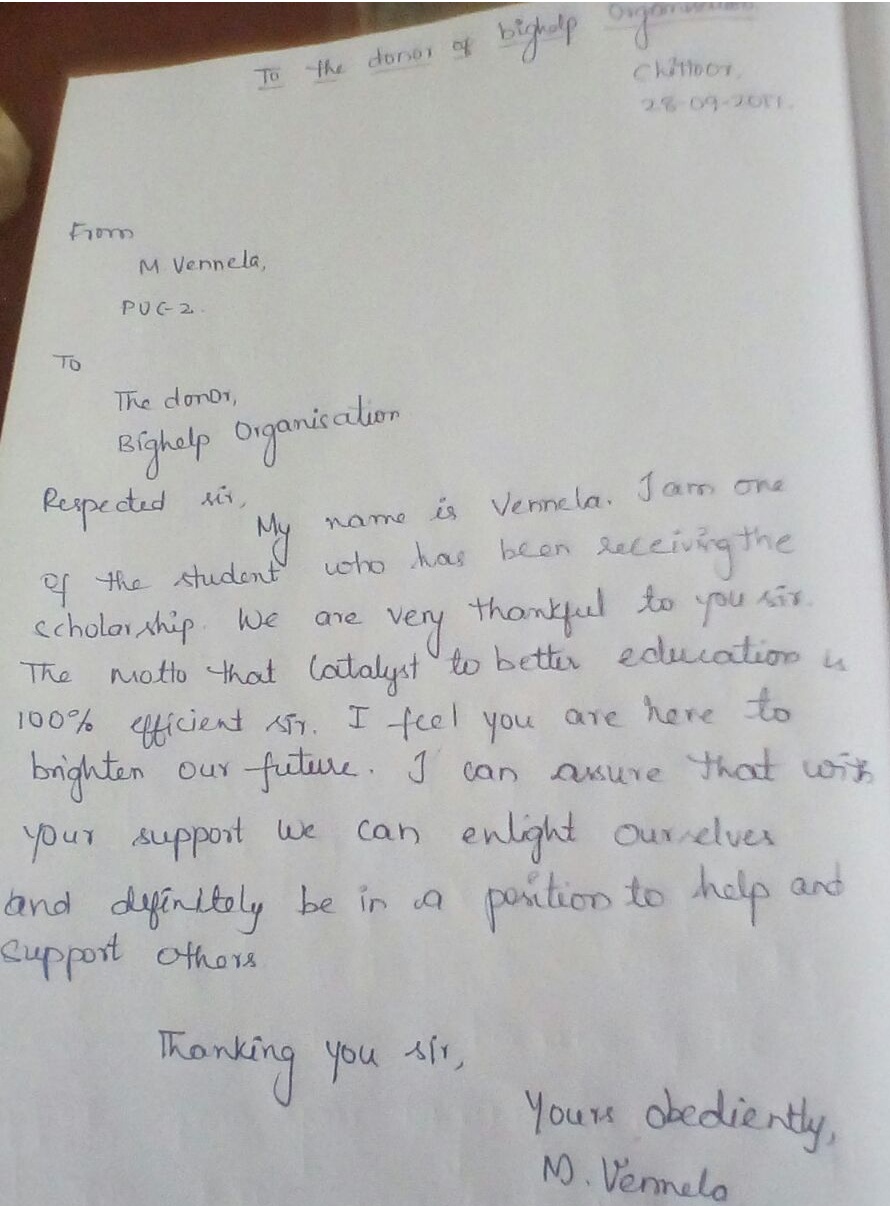 To the donor of bighelp Organisation
Chittoor,
28-09-2017.
From
M Vennela,
PUC-2.
To
The donor,
Bighelp Organisation
Respected sir,
My name is Vennela. I am one
of the student who has been receiving the
scholarship. We are very thankful to you sir.
The motto that Catalyst to better education is
100% efficient sir. I feel you are here to
brighten our future. I can assure that with
your support we can enlight ourselves
and definitely be in a position to help and
support others
Thanking you sir,
Yours obediently,
M. Vennela